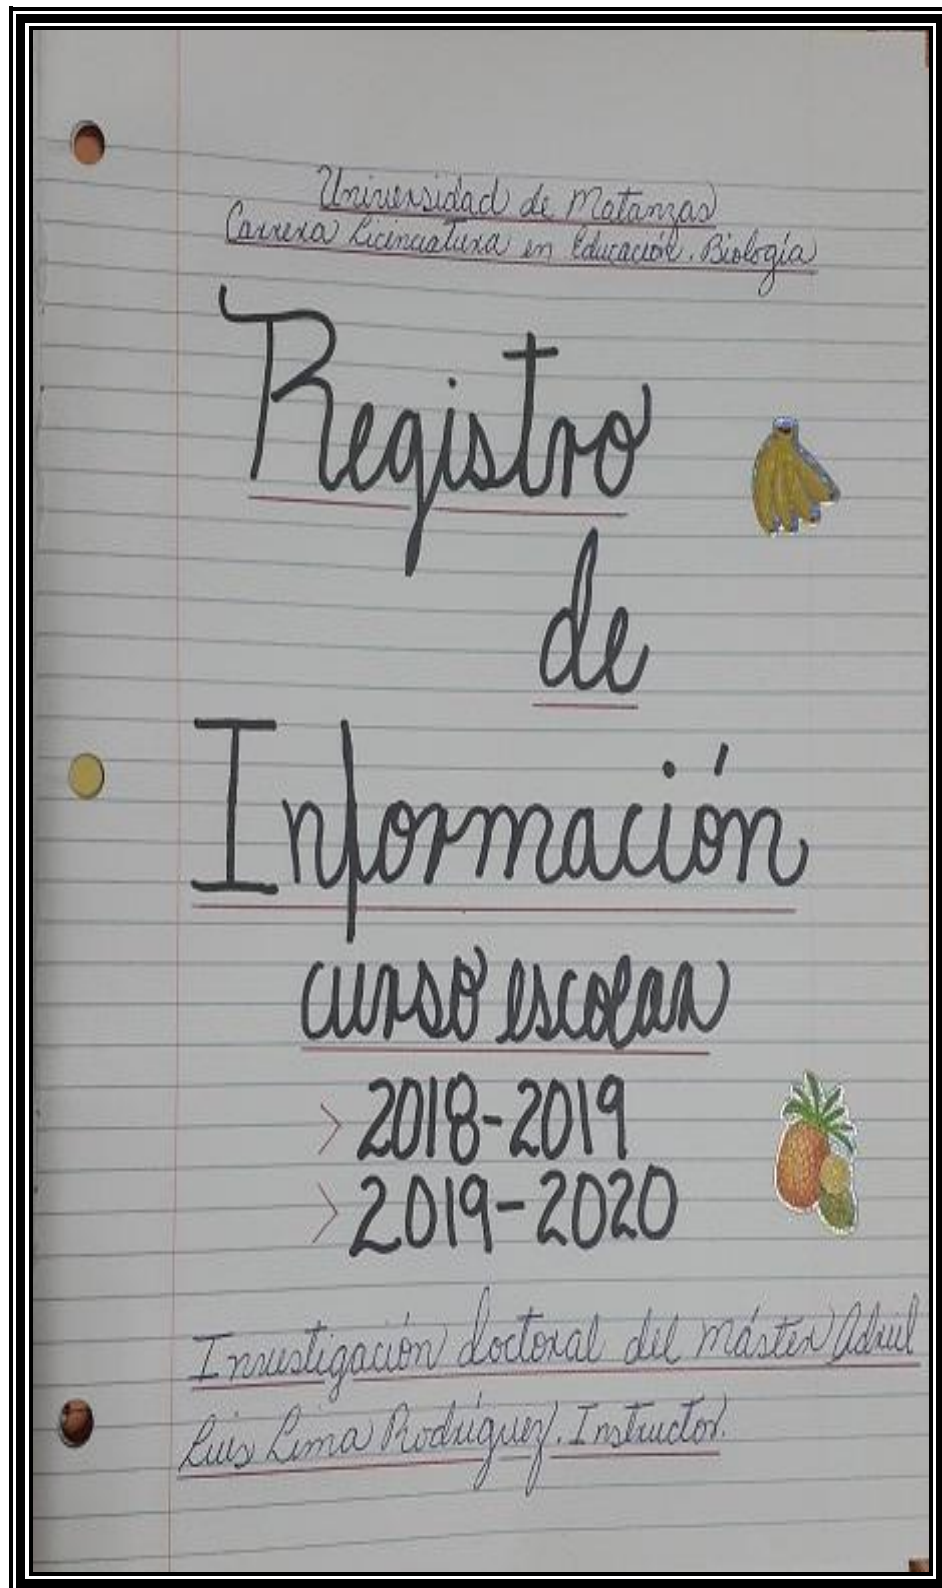 Universidad de Matanzas
Carrera Licenciatura en Educación. Biología
Registro
de
Información
curso escolar
> 2018-2019
> 2019-2020
Investigación doctoral del máster Adriel
Luis Lima Rodríguez. Instructor.